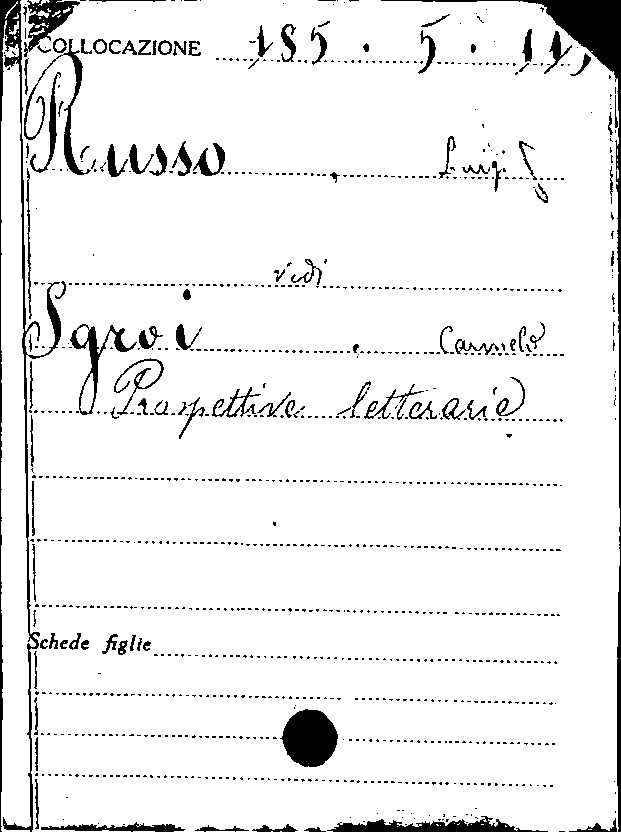 COLLOCAZIONE 185 . 5 . 11,
Russo , Luigi
vedi
Sgroi , Carmelo
Prospettive letterarie
Schede figlie